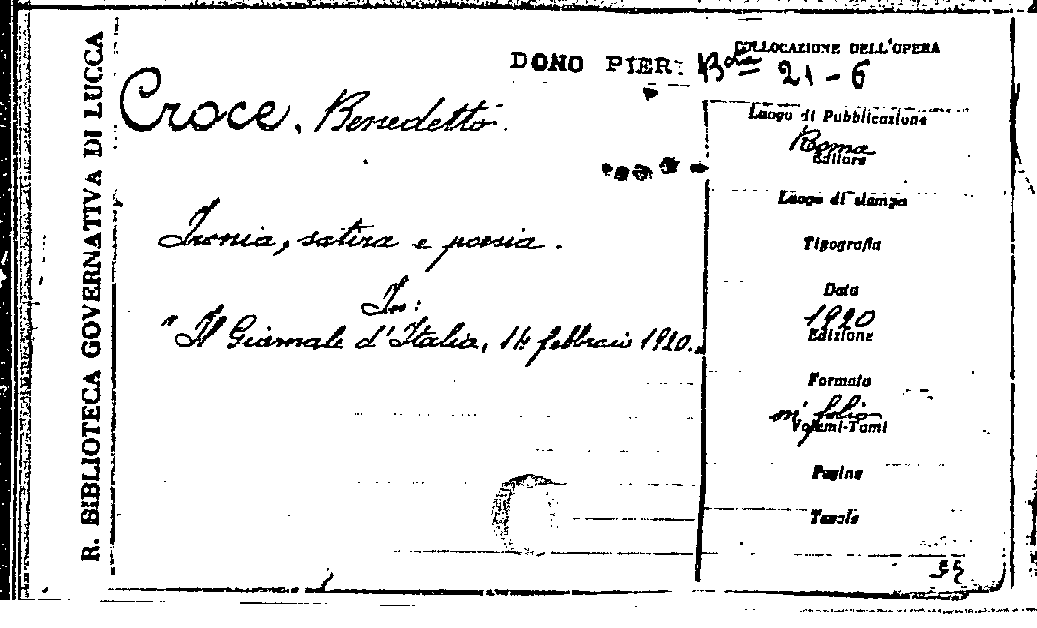 R. BIBLIOTECA GOVERNATIVA DI LUCCA
DONO PIERI
COLLOCAZIONE DELL'OPERA
21-6
Croce, Benedetto.
Ironia, satira e poesia.
In:
"Il Giornale d'Italia, 14 febbraio 1920.
Luogo di Pubblicazione
Roma
Editore
Luogo di stampa
Tipografia
Data
1920
Edizione
Formato
in folio
Volumi-Tomi
Pagine
Tavole